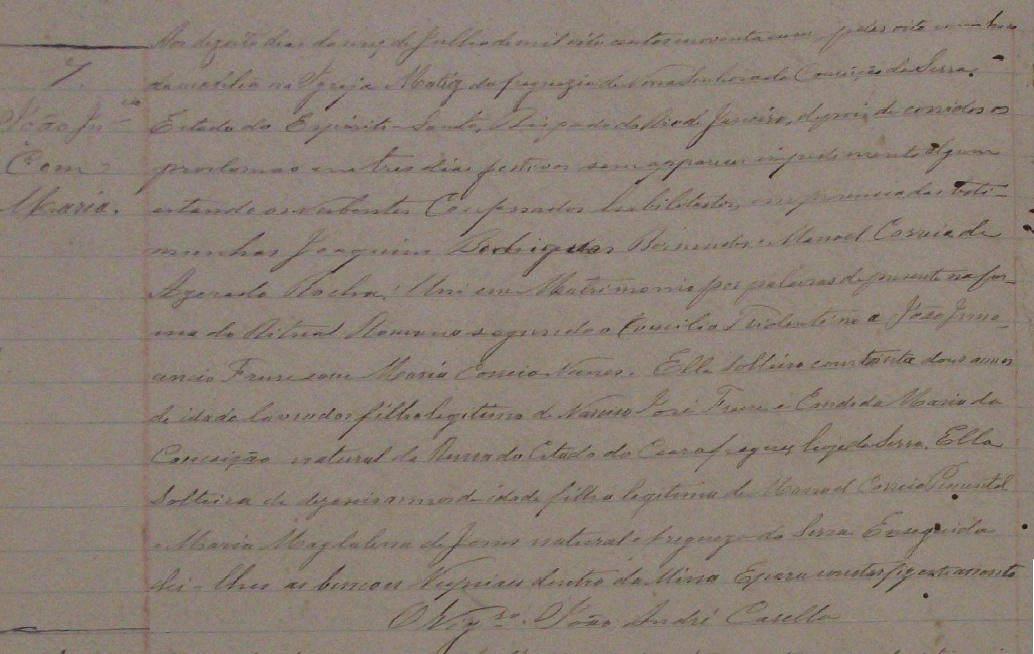 7.
João In.cio
Com
Maria.
Aos dezoito dias do mez de Julho de mil oito centos noventa e um, pelas oito
da manhã na Igreja Matriz da freguezia de Nossa Senhora da Conceição da Serra
Estado do Espirito-Santo, Bispado do Rio de Janeiro, depois de corridos os
proclamas em tres dias festivos sem apparecer impedimento algum
estando os nubentes Confessados habilitados, em presença das teste-
munhas Joaquim Rodrigues e Manoel Correia de
Azeredo Rocha: Uni em Matrimonio por palavras de presente na for-
ma do Ritual Romano segundo o Concilio Tridentino a João Inno-
cencio Freire com Maria Correia Nunes. Elle solteiro com trinta dous annos
de idade lavrador filho legitimo de Narciso José Freire e Candida Maria da
Conceição natural da do Estado do Ceará freguez hoje da Serra. Ella
Solteira de dezeseis annos de idade filha legitima de Manoel Correia Pimentel
e Maria Magdalena de Jesus natural e fregueza da Serra. Em seguida
dei-lhes as bençoes Nupciaes dentro da Missa E para constar fiz este assento
O Vigro. João André Casella